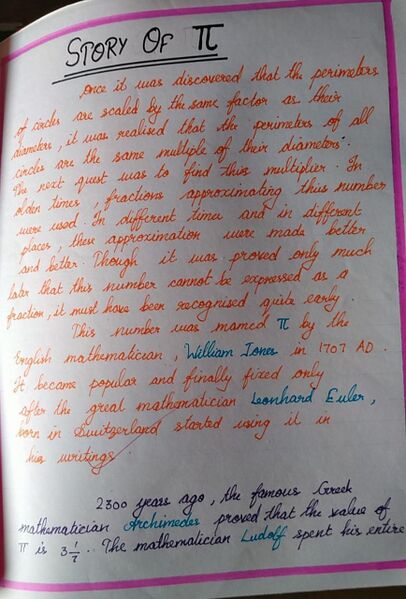 STORY OF π
Once it was discovered that the perimeters
of circles are scaled by the same factor as their
diameters, it was realised that the perimeters of all
circles are the same multiple of their diameters.
The next quest was to find this multiplier. In
olden times, fractions approximating this number
were used. In different times and in different
places, these approximation were made better
and better. Though it was proved only much
later that this number cannot be expressed as a
fraction, it must have been recognised quite early.
This number was named π by the
English mathematician, William Jones in 1707 AD.
It became popular and finally fixed only
after the great mathematician Leonhard Euler,
born in Switzerland started using it in
his writings.
2300 years ago, the famous Greek
mathematician Archimedes proved that the value of
π is 3 1/7. The mathematician Ludolf spent his entire